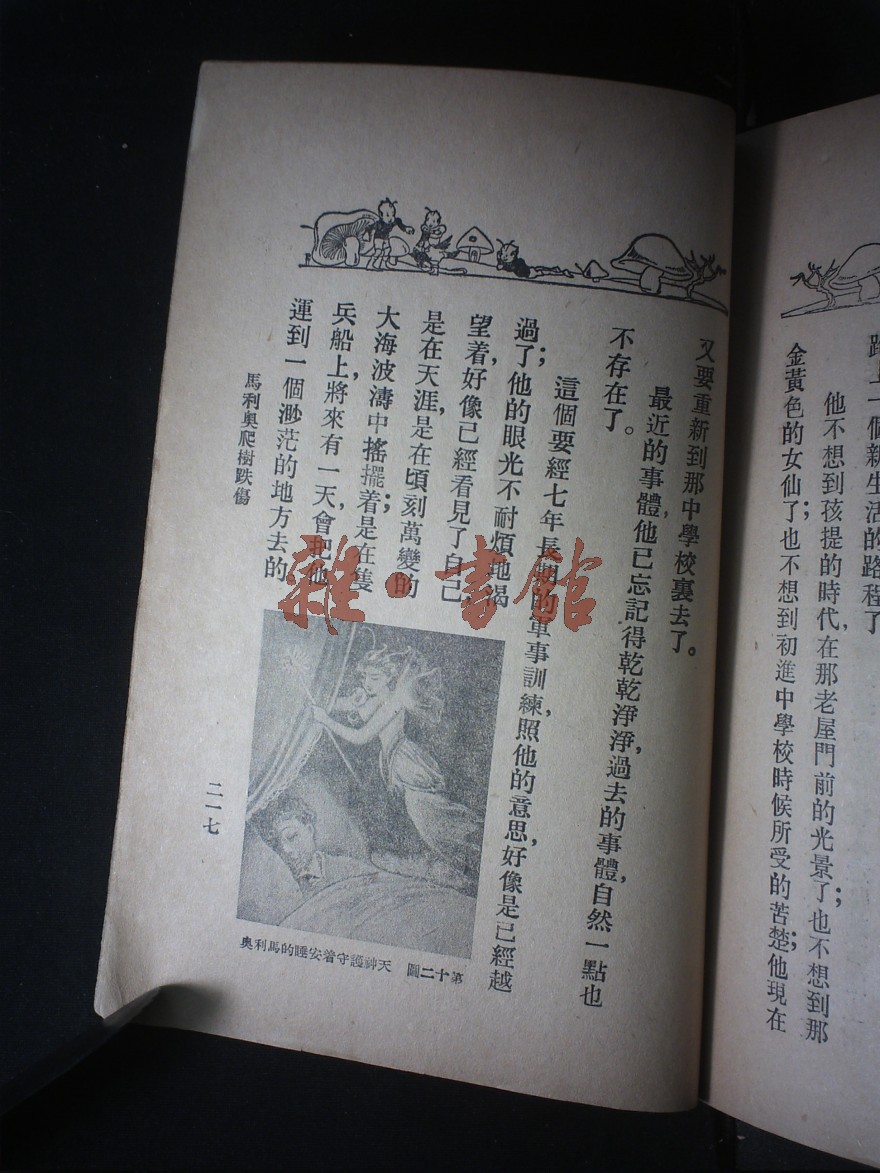 踏上一個新生活的路程了
他不想到孩提的時代，在那老屋門前的光景了；也不想到那
金黃色的女仙了；也不想到初進中學校時候所受的苦楚；他現在
又要重新到那中學校裏去了。
最近的事體，他已忘記得乾乾淨淨，過去的事體，自然一點也
不存在了。
這個要經七年長期的軍事訓練，照他的意思，好像是已經越
過了；他的眼光不耐煩地渴
望着，好像已經看見了自己
是在天涯，是在頃刻萬變的
大海波濤中搖擺着；是在隻
兵船上將來有一天，會把他
運到一個渺茫的地方去的
馬利奧爬樹跌傷
二一七
第十二圖 天神護守着安睡的馬利奧
雜·書館